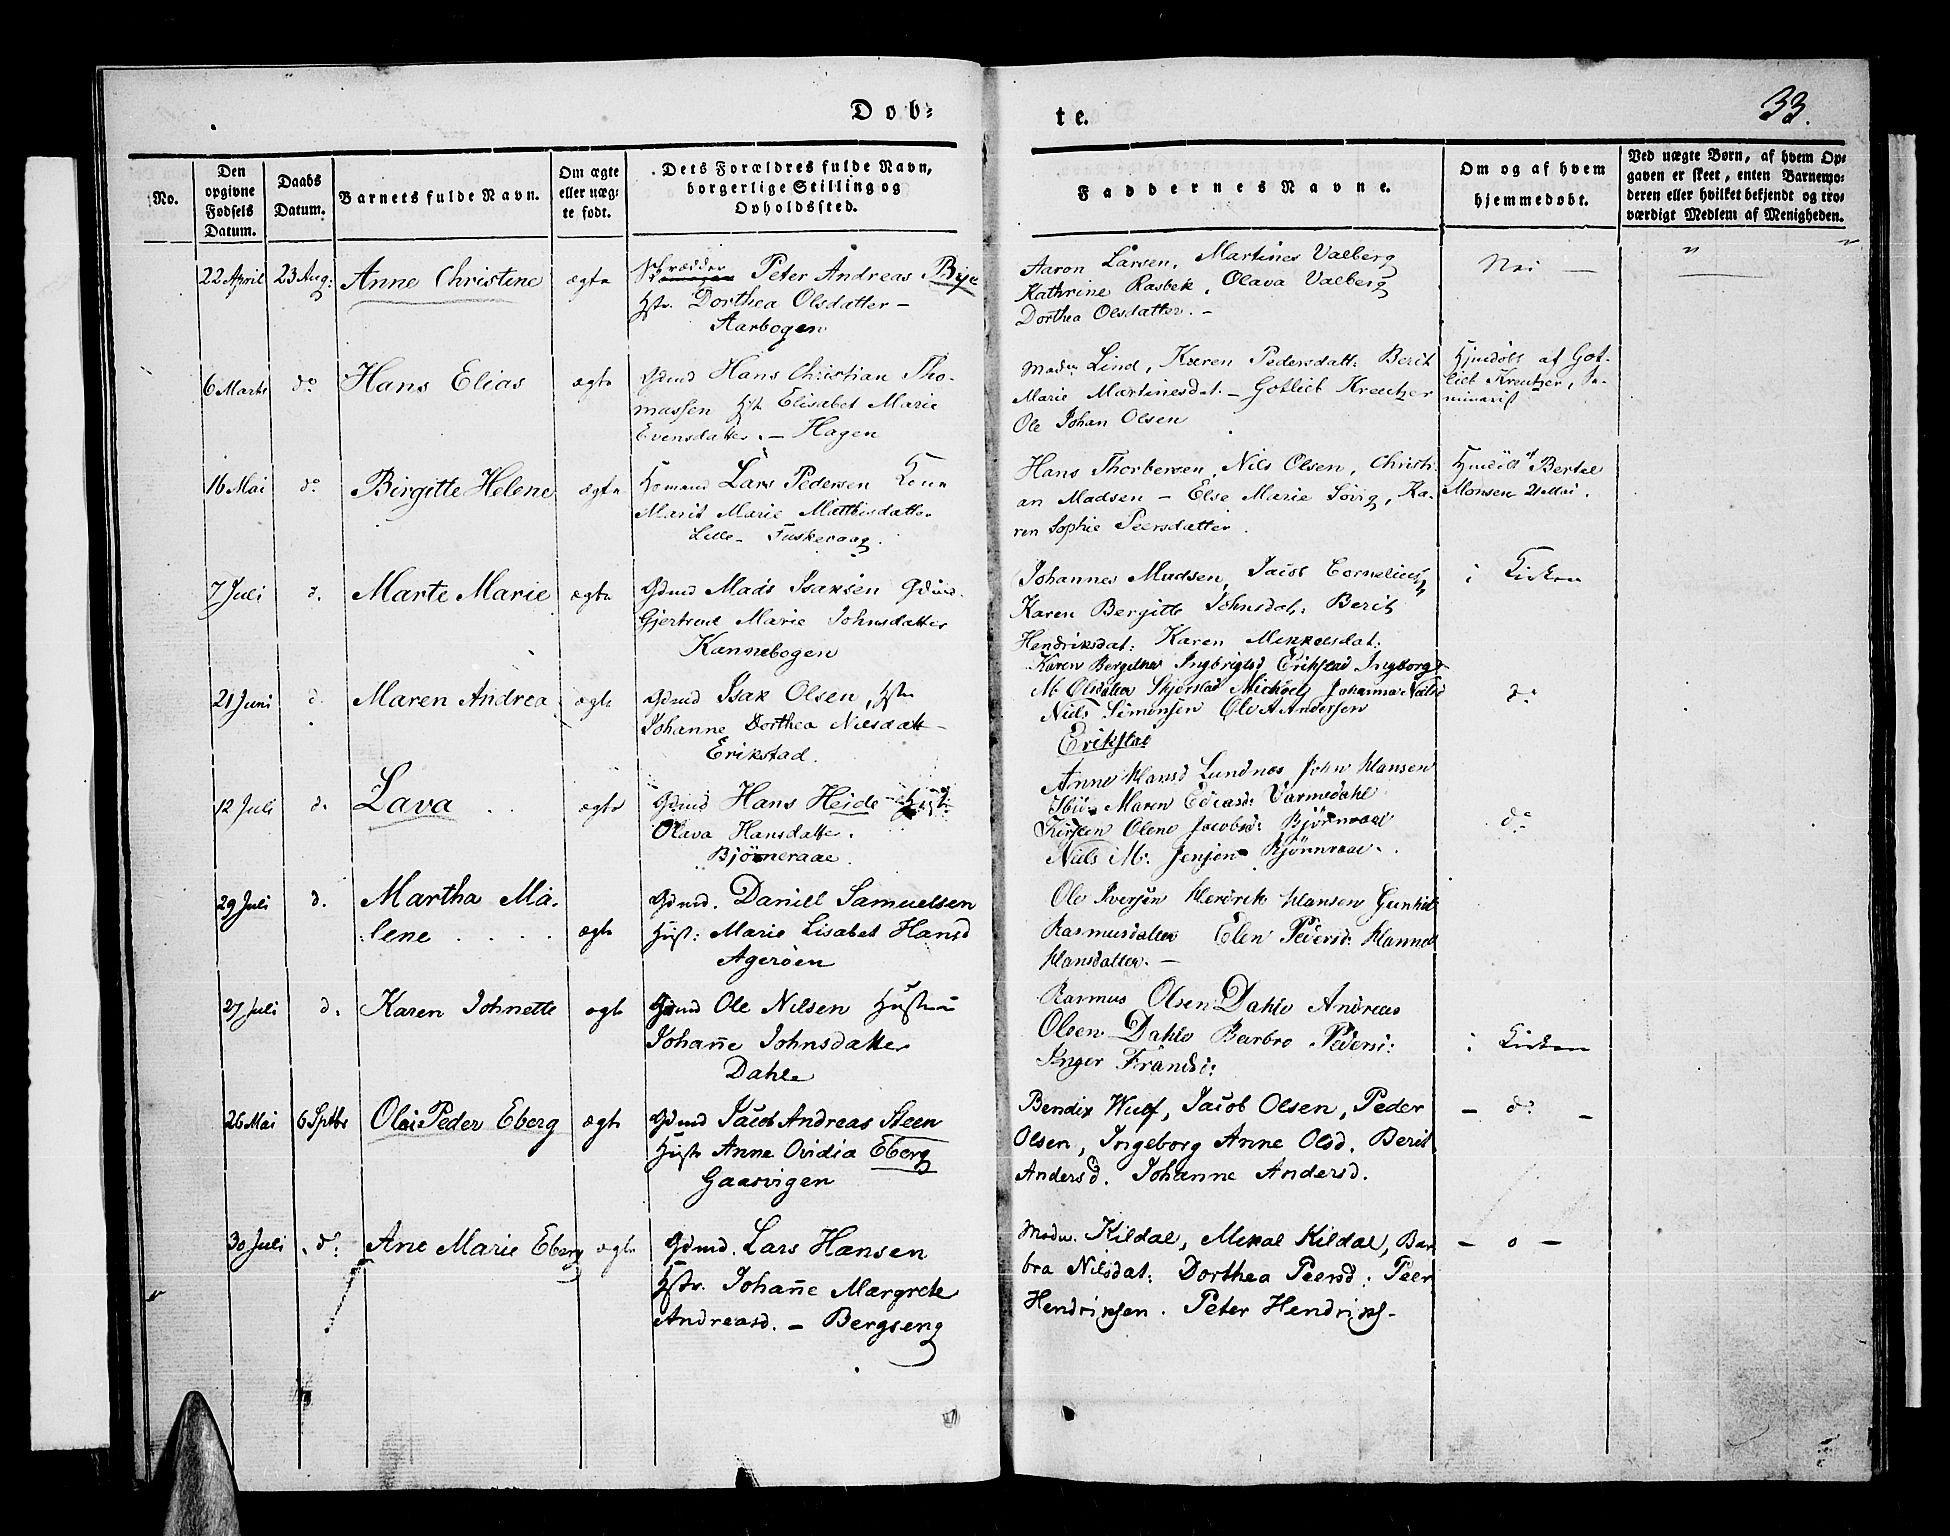 Døb-
te.
33.
No.
Den opgivne Fødsels Datum.
Daabs Datum.
Barnets fulde Navn.
Om ægte eller uæg-
te født.
Dets Forældres fulde Navn,
borgerlige Stilling og
Opholdssted.
Faddernes Navne.
Om og af hvem
hjemmedøbt.
Ved uægte Børn, af hvem Op-
gaven er skeet, enten Barnemo-
deren eller hvilket bekjendt og tro-
værdigt Medlem af Menigheden.
22 April 23 Aug: Anne Christine ægte Skrædder Peter Andreas Bye
Hstr. Dorthea Olsdatter –
Aarbogen
Aaron Larsen, Martines Valberg
Kathrine Rasbek, Olava Valberg
Dorthea Olsdatter. –
Nei —
"
6 Marts do Hans Elias ægte Gdmd Hans Christian Tho-
massen Hst Elisabet Marie
Evensdatter. – Hagen
Madm Lind, Karen Pedersdatt: Berit
Marie Martinesdat. – Gotlieb Kreutzer
Ole Johan Olsen
Hjmdøbt af Got-
lieb Kreutzer, Se-
minarist
16 Mai do Birgitte Helene ægte Lars Pedersen Kone
Marit Marie Matthisdatter
Lille- Fuskevaag.
Hans Thorbersen, Nils Olsen, Christi-
an Madsen – Else Marie Søvig, Ka-
ren Sophie Peersdatter.
Hjmdøbt af Bertel
Monsen 21 Mai.
7 Juli d. Marte Marie ægte Gdmd Mads Isaksen
Gjertrud Marie Johnsdatter
Kannebogen
Johannes Madsen, Jacob Cornelius
Karen Bergitte Johnsdat: Berit
Hendriksdat: Karen Mikkelsdat:
i Kirken
21 Juni d. Maren Andrea ægte Gdmd Isak Olsen, Hstr
Johanne Dorthea Nilsdatt –
Erikstad.
Karen Bergitha Ingbrigtsd Erikstad Ingborg
M. Olsdatter Skjørstad Michael Johanna Neilsd
Niels Simonsen Ole A Andersen
Erikstad
do
12 Juli d. Lava ægte Gdmd Hans Heide
Olava Hansdatter.
Bjørneraae.
Anne Hansd Lundnæs John Hansen
Maren Eliasd: Varmedahl
Kirsten Olene Jacobsd: Bjørnraae
Niels M. Jensen Bjørnraae.
do
29 Juli d. Martha Ma-
lene ægte Gdmd. Daniell Samuelsen
Hust: Marie Lisabet Hansd
Agerøen
Ole Iversen Hendrik Hansen Gunhil
Rasmusdatter Elen Pedersd: Hanna
Hansdatter. –
27 Juli d. Karen Johnette ægte Gdmd Ole Nilsen Hustru
Johañe Johnsdatter
Dahle
Rasmus Olsen Dahle Andreas
Olsen Dahle Barbro Pedersd:
Inger Frandsd:
i Kirken
26 Mai 6 Sptbr Olai Peder Eberg ægte Gdmd Jacob Andreas Steen
Hustr Anne Ovidia Eberg
Gaasvigen
Bendix Wulf, Jacob Olsen, Peder
Olsen, Ingeborg Anne Olsd. Berit
Andersd. Johanne Andersd.
– do –
30 Juli do: Ane Marie Eberg ægte Gdmd. Lars Hansen
Hstr. Johañe Margrete
Andreasd. – Bergseng
Madm. Kildal, Mikal Kildal, Bar
bra Nilsdat: Dorthea Peersd: Peer
Hendriksen. Peter Hendriks-
– o –